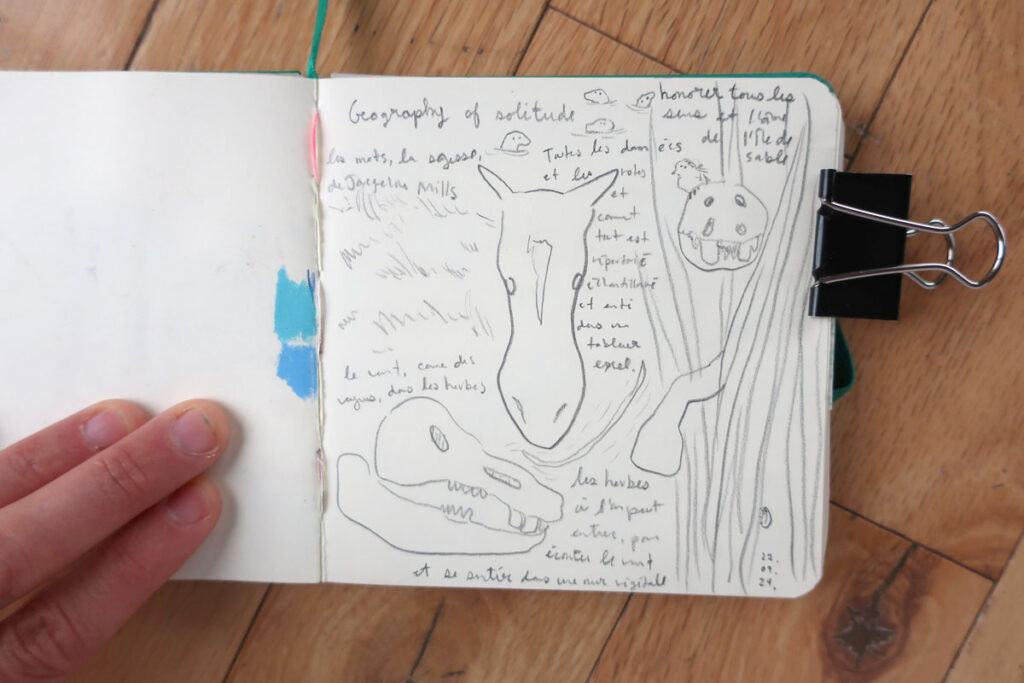 Geography of solitude
les mots, la sagesse,
de Jacqeline Mills
Toutes les données
et les notes
et
comment
tout est
répertorié
échantillonné
et entré
dans un
tableur
excel.
honorer tous les
sens et l'âme
de l'île de
sable
le vent, comme des
vagues, dans les herbes
les herbes
où l'on peut
entrer, pour
écouter le vent
et se sentir dans une mer végétale
27.
09.
24.